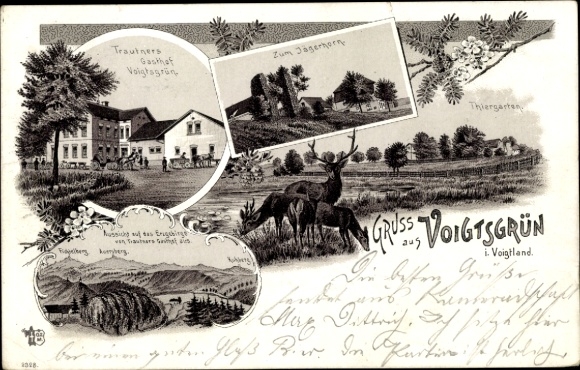 Trautners
Gasthof
Voigtsgrün.
Zum Jägerhorn.
Thiergarten.
Aussicht auf das Erzgebirge
von Trautners Gasthof aus.
Fichtelberg. Auersberg.
Kuhberg.
GRUSS
aus VOIGTSGRÜN
i. Voigtland.
Die besten Grüße
sendet aus Kameradschaft
Max Dittrich. Ich sitze hier
bei einen guten Glaß Bier, die Partie ist
herlich.